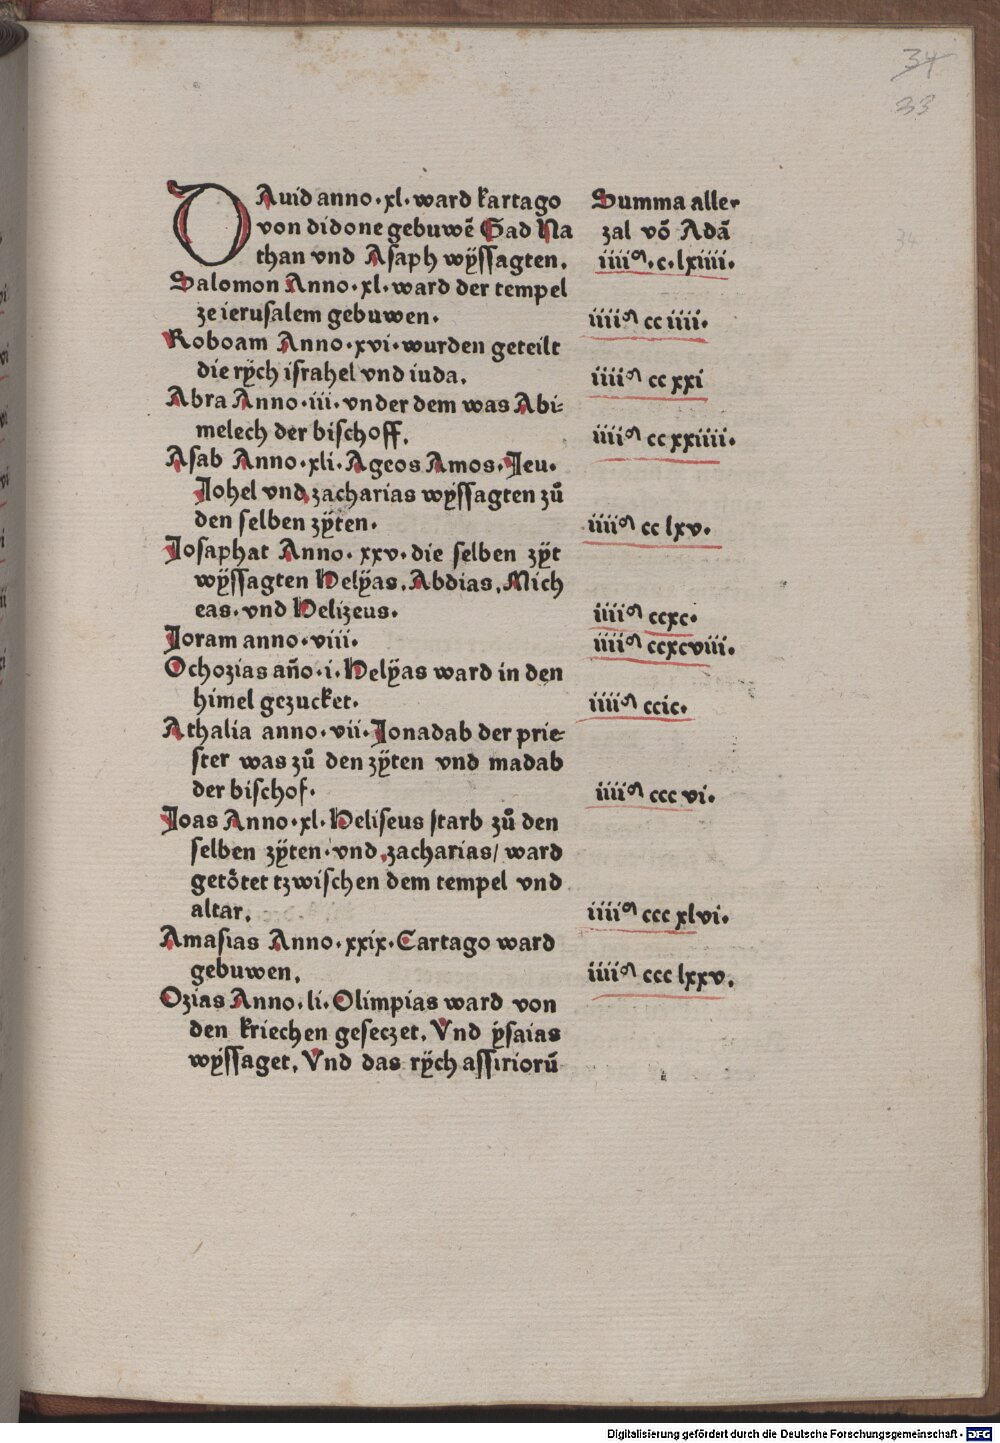 34
33
DAuid anno·xl·ward kartago
von didone gebuwē Gad Na
than vnd Asaph wÿssagten.
Salomon Anno·xl·ward der tempel
ze ierusalem gebuwen·
Roboam Anno·xvi·wurden geteilt
die rÿch israhel vnd iuda.
Abra Anno·iii·vnder dem was Abi⸗
melech der bischoff.
Asab Anno·xli·Ageos Amos·Jeu·
Johel vnd zacharias wÿssagten zuͦ
den selben zÿten·
Josaphat Anno·xxv·die selben zÿt
wÿssagten Helÿas.Abdias.Mich
eas·vnd Helizeus·
Joram anno·viii·
Ochozias año·i·Helÿas ward in den
himel gezucket·
Athalia anno·vii·Jonadab der prie⸗
ster was zuͦ den zÿten vnd madab
der bischof·
Joas Anno·xl·Heliseus starb zuͦ den
selben zÿten·vnd zacharias/ ward
getoͤtet tzwischen dem tempel vnd
altar.
Amasias Anno·xxix·Cartago ward
gebuwen.
Ozias Anno·li·Olimpias ward von
den kriechen geseczet. Vnd ÿsaias
wÿssaget. Vnd das rÿch assiriorū
Summa aller
zal vō Adā
iiiiᵐ·c·lxiiii·
iiiiᵐ cc iiii·
iiiiᵐ cc xxi
iiiiᵐ cc xxiiii·
iiiiᵐ cc lxv·
iiiiᵐ ccxc·
iiiiᵐ ccxcviii·
iiiiᵐ ccic·
iiiiᵐ ccc vi·
iiiiᵐ ccc xlvi·
iiiiᵐ ccc lxxv.
34
Digitalisierung gefördert durch die Deutsche Forschungsgemeinschaft - DFG